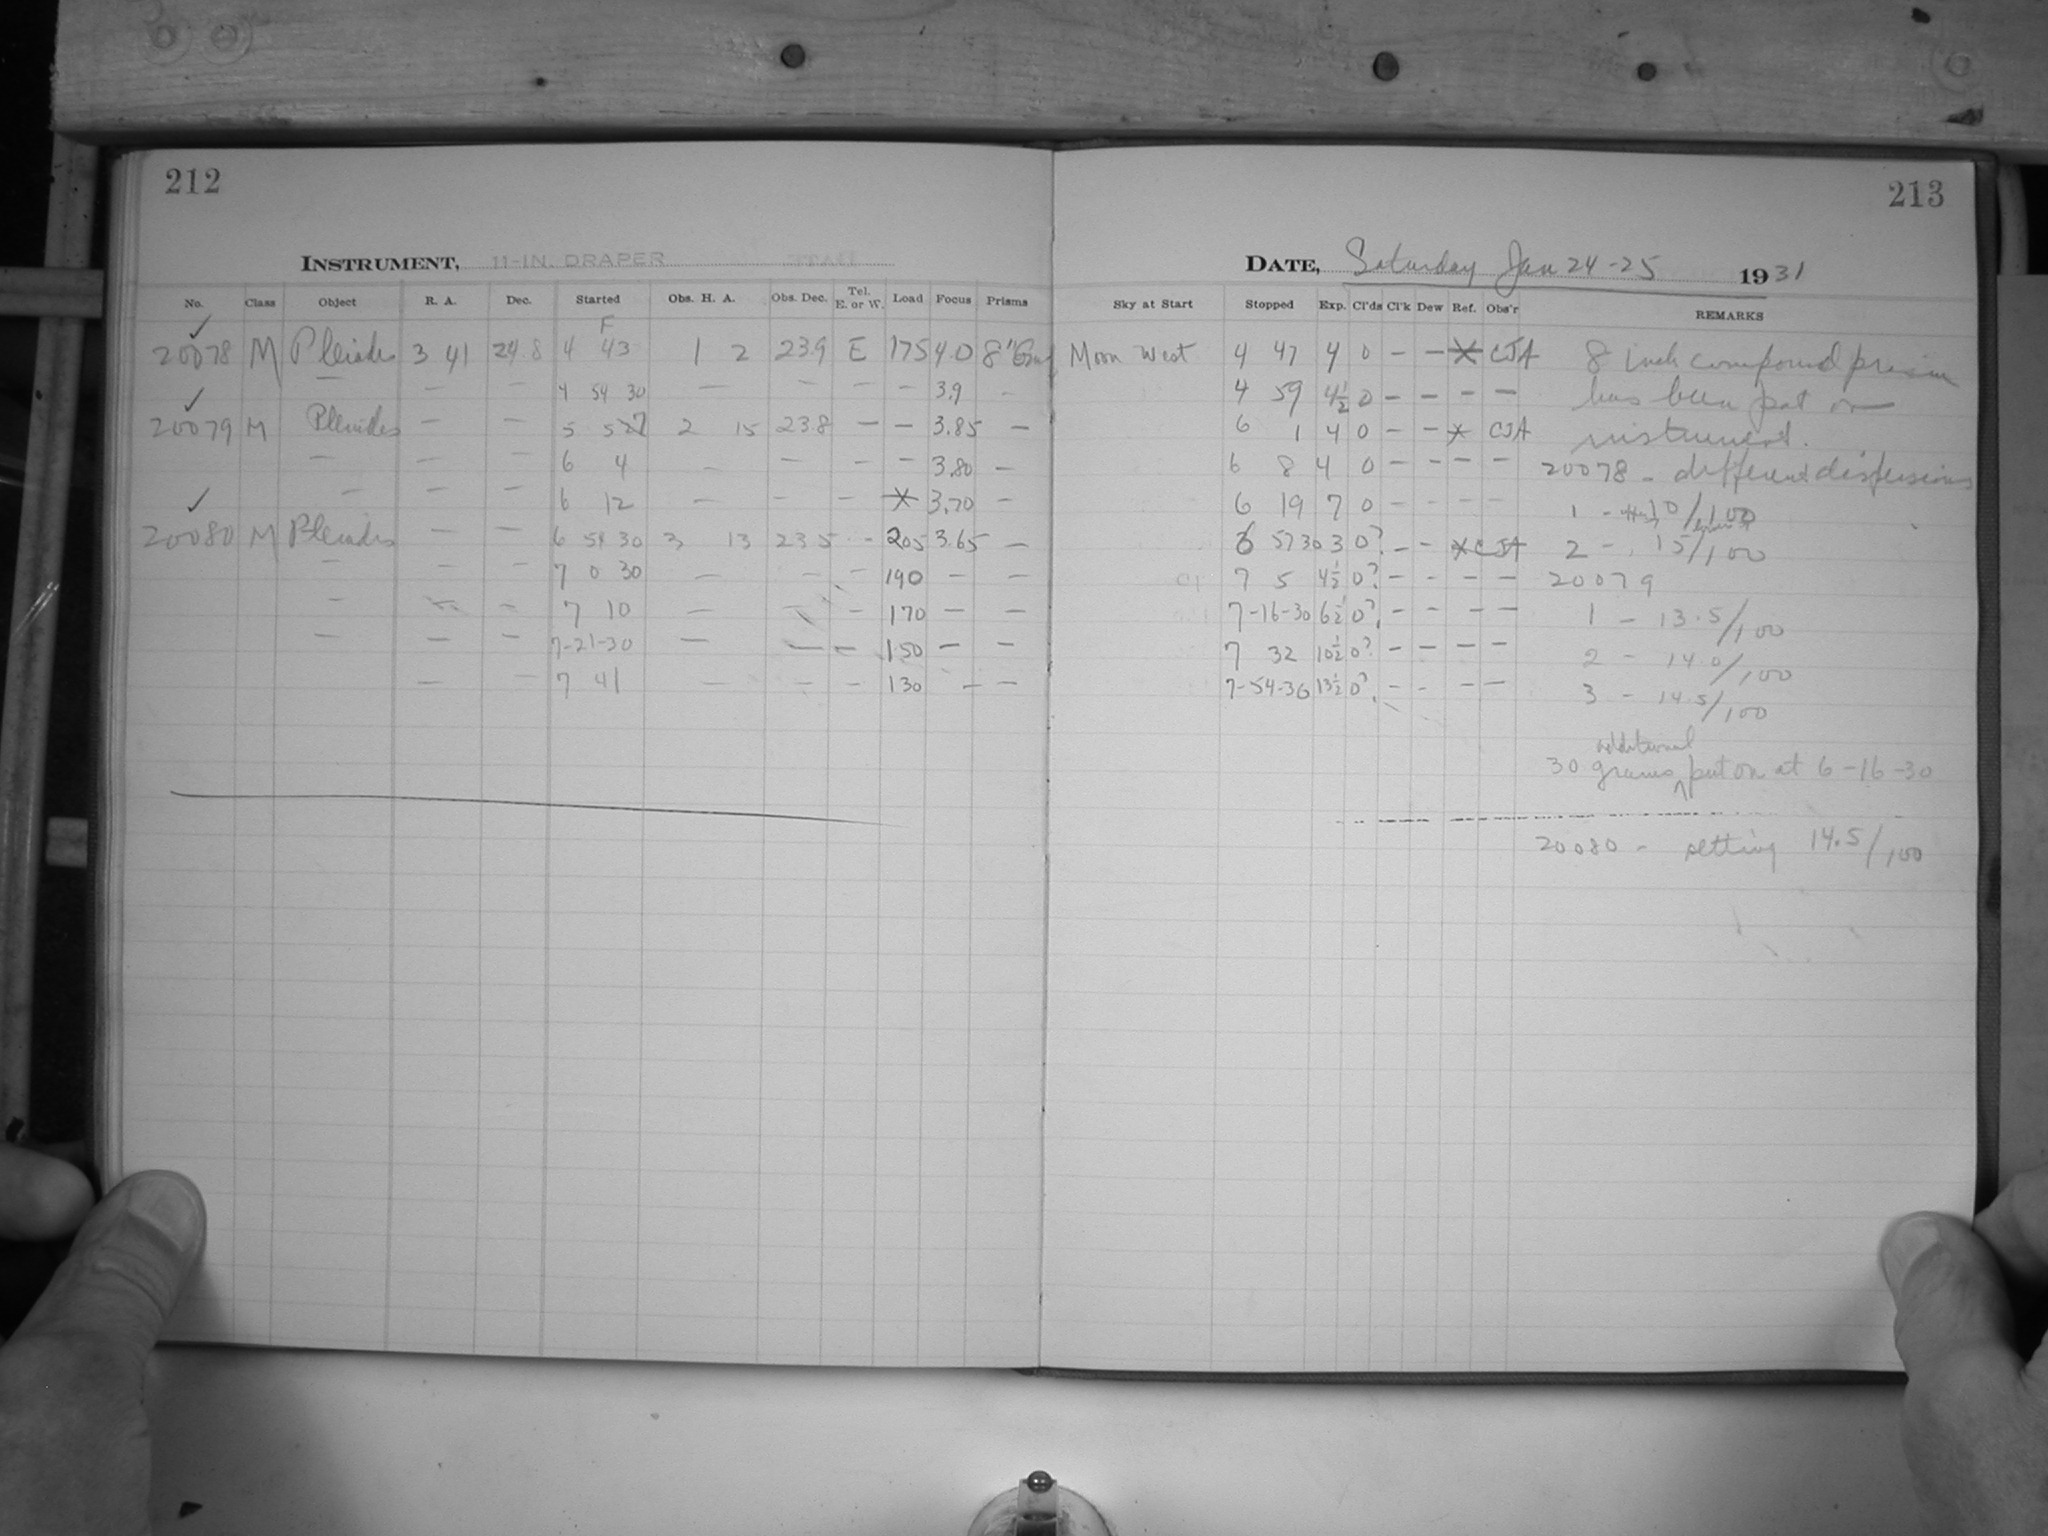 212
INSTRUMENT, 11-IN. DRAPER
No. Class Object R. A. Dec. Started Obs. H. A. Obs. Dec. Tel. E. or W. Load Focus Prisms
F
✓
20078 M Pleiades 3 41 24.8 4 43 1 2 23.9 E 175 4.0 8"
— — — 4 54 30 — — — — 3.9 —
✓
20079 M Pleiades — — 5 57 2 15 23.8 — — 3.85 —
— — — 6 4 — — — — 3.80 —
— — — 6 12 — — — X 3.70 —
✓
20080 M Pleiades — — 6 54 30 3 13 23.5 - 205 3.65 —
— — — 7 0 30 — — — 190 — —
— — — 7 10 — — — 170 — —
— — — 7-21-30 — — — 150 — —
— — 7 41 — — — 130 — —
213
DATE, Saturday Jan 24-25 1931
Sky at Start Stopped Exp. Cl'ds Cl'k Dew Ref. Obs'r REMARKS
Moon West 4 47 4 0 — — X CJA 8 inch compound prism
4 59 4½ 0 — — — — has been put on
6 1 4 0 — — X CJA instrument.
6 8 4 0 — — — — 20078 - different dispersions
6 19 7 0 — — — — 1 - 10/100
6 57 30 3 0? — — X CJA 2 - 15/100
7 5 4½ 0? — — — — 20079
7-16-30 6½ 0? — — — — 1 - 13.5/100
7 32 10½ 0? — — — — 2 - 14.0/100
7-54-30 13½ 0? — — — — 3 - 14.5/100
additional
30 grams ^ put on at 6-16-30
20080 - setting 14.5/100